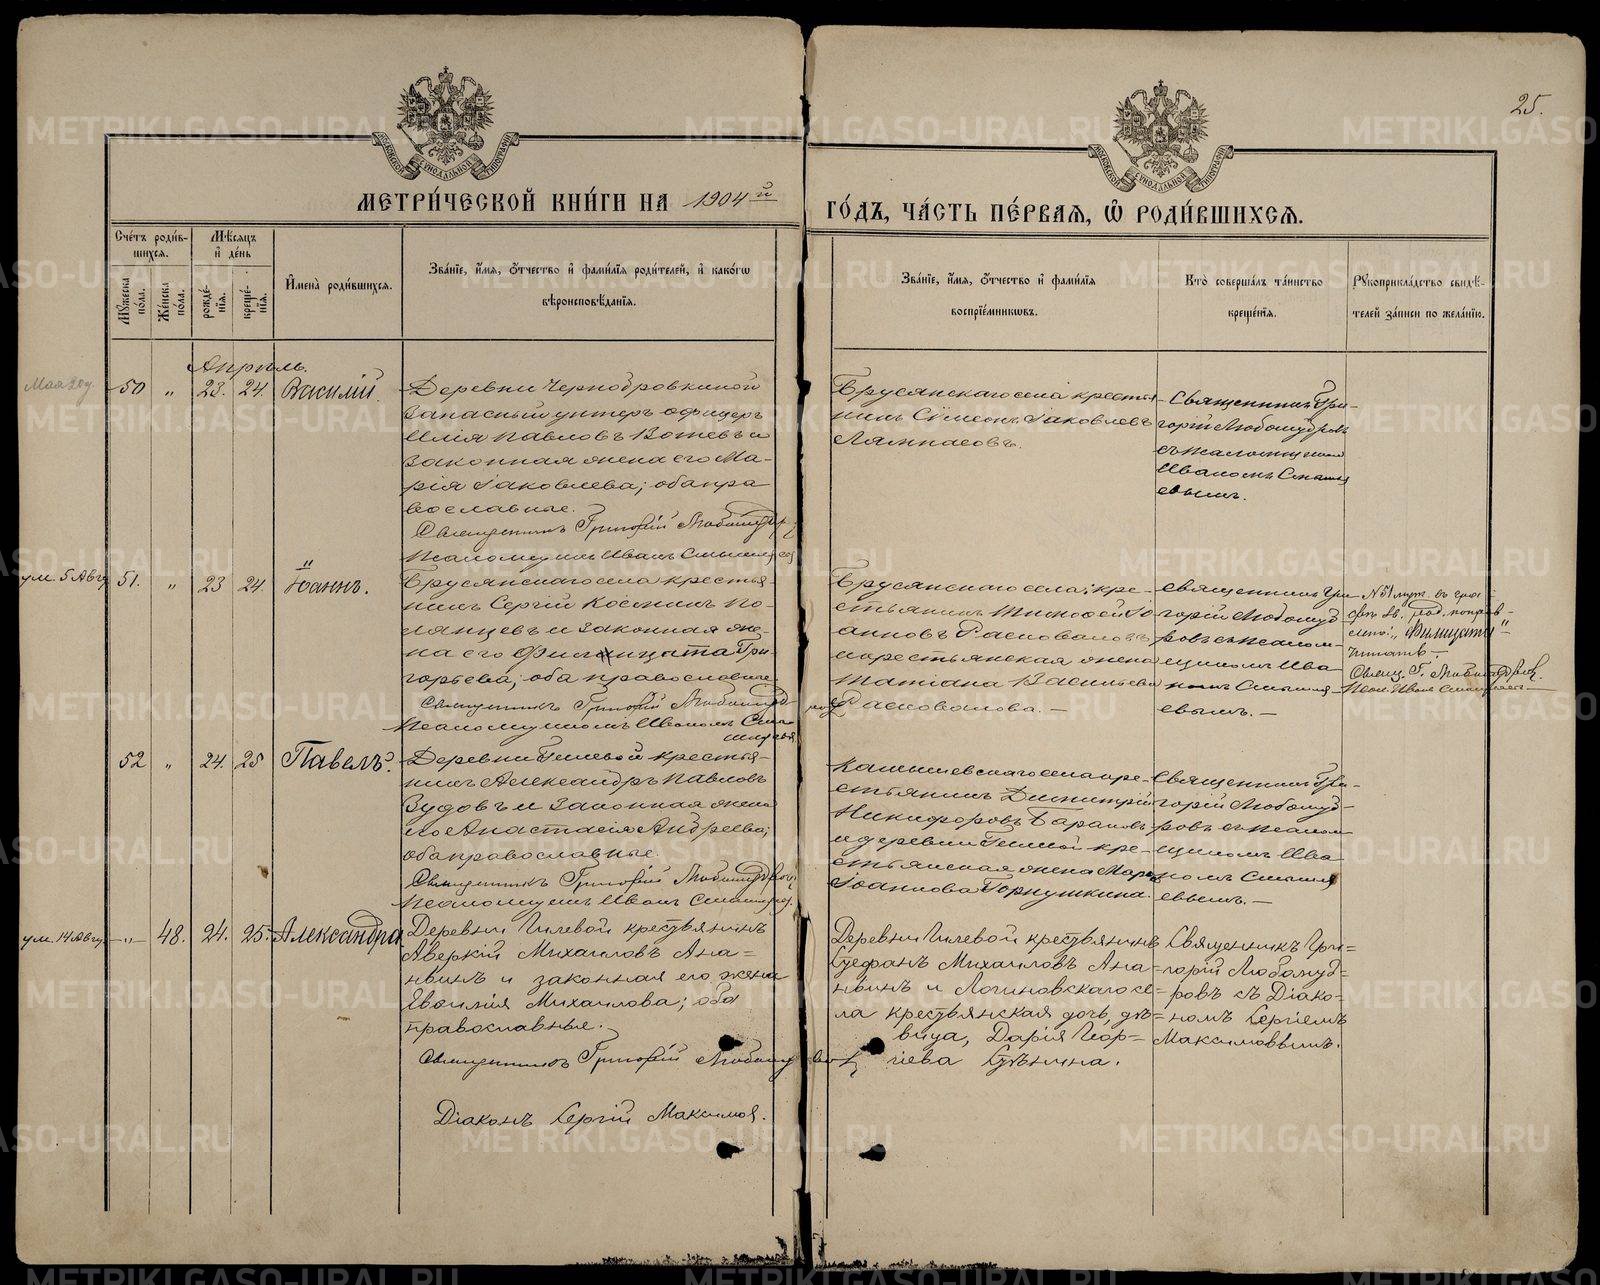 25.
МЕТРИ́ЧЕСКОЙ КНИ́ГИ НА 1904й
ГО́ДЪ, ЧА́СТЬ ПЕ́РВАЯ, Ѡ РОДИ́ВШИХСЯ.
МОСКОВСКОЙ СѴНОДАЛЬНОЙ ТИПОГРАФІИ
МОСКОВСКОЙ СѴНОДАЛЬНОЙ ТИПОГРАФІИ
Сче́тъ роди́вшихся.
Мꙋ́жеска по́ла.
Же́нска по́ла.
Мѣ́сяцъ и҆ де́нь
рожде́нїя.
креще́нїя.
И҆мена̀ роди́вшихся.
Зва́нїе, и҆́мя, ѻ҆́тчество и҆ фами́лїя роди́телей, и҆ како́гѡ
вѣроисповѣ́данїя.
Зва́нїе, и҆́мя, ѻ҆́тчество и҆ фами́лїя
воспрїе́мникѡвъ.
Кто̀ соверша́лъ та́инство
креще́нїя.
Рꙋкоприкла́дство свидѣ́-
телей за́писи по жела́нїю.
Апрѣль.
50 „ 23. 24. Василій.
Деревни Чернобровкиной
запасный унтеръ офицеръ
Илія Павловъ Вотевъ и
законная жена его Ма-
рія Іаковлева; оба пра
вославные.
Священникъ Григорій Любомудр
Псаломщикъ Иванъ
Брусянскаго села крестья-
нинъ Сѵмеонъ Іаковлевъ
Лампасовъ.
Священникъ Гри-
горій Любомудровъ
съ псаломщикомъ
Иваномъ
евымъ.
ум. 5 Авгу. 51. „ 23 24. Іоаннъ.
Брусянскаго села крестья-
нинъ Сергій Косминъ По-
лянцевъ и законная же-
на его Филицата Гри-
горьева; оба православные
Священникъ Григорій Любомудр
Псаломщикъ Иванъ
Брусянскаго села: кре-
стьянинъ Тимофей Іо
анновъ Расковаловъ
и крестьянская жена
Татіана Васильева
Расковалова. —
Священникъ Гри-
горій Любомуд
ровъ съ псалом-
щикомъ Ива
номъ
евымъ. —
№ 51 муж. въ
читать —
Свящ. Г. Любомудров.
Псал. Иванъ
52 „ 24. 25 Павелъ.
Деревни Гилевой крестья-
нинъ Александръ Павловъ
Зудовъ и законная жена
его Анастасія Андреева;
оба православные.
Священникъ Григорій Любомудров
Псаломщикъ Иванъ
Камышевскаго села кре-
стьянинъ Димитрій
Никифоровъ Барановъ
и деревни Гилевой кре-
стьянская жена Марѳа
Іоаннова Горнушкина.
Священникъ Гри-
горій Любомуд-
ровъ съ псалом
щикомъ Ива
номъ
евымъ. —
ум. 14 Авгу. „ 48. 24. 25. Александра
Деревни Гилевой крестьянинъ
Аверкій Михаиловъ Ана-
ньинъ и законная его жена
Евѳимія Михаилова; оба
православные.
Священникъ Григорій Любомудров
Діаконъ Сергій Максимов.
Деревни Гилевой крестьянинъ
Стефанъ Михаиловъ Ана-
ньинъ и Логиновскаго се-
ла крестьянская дочь, дѣ-
вица, Дарія Геор-
гіева
Священникъ Гри-
горій Любомуд-
ровъ съ Діако-
номъ Сергіемъ
Максимовымъ.
METRIKI.GASO-URAL.RU